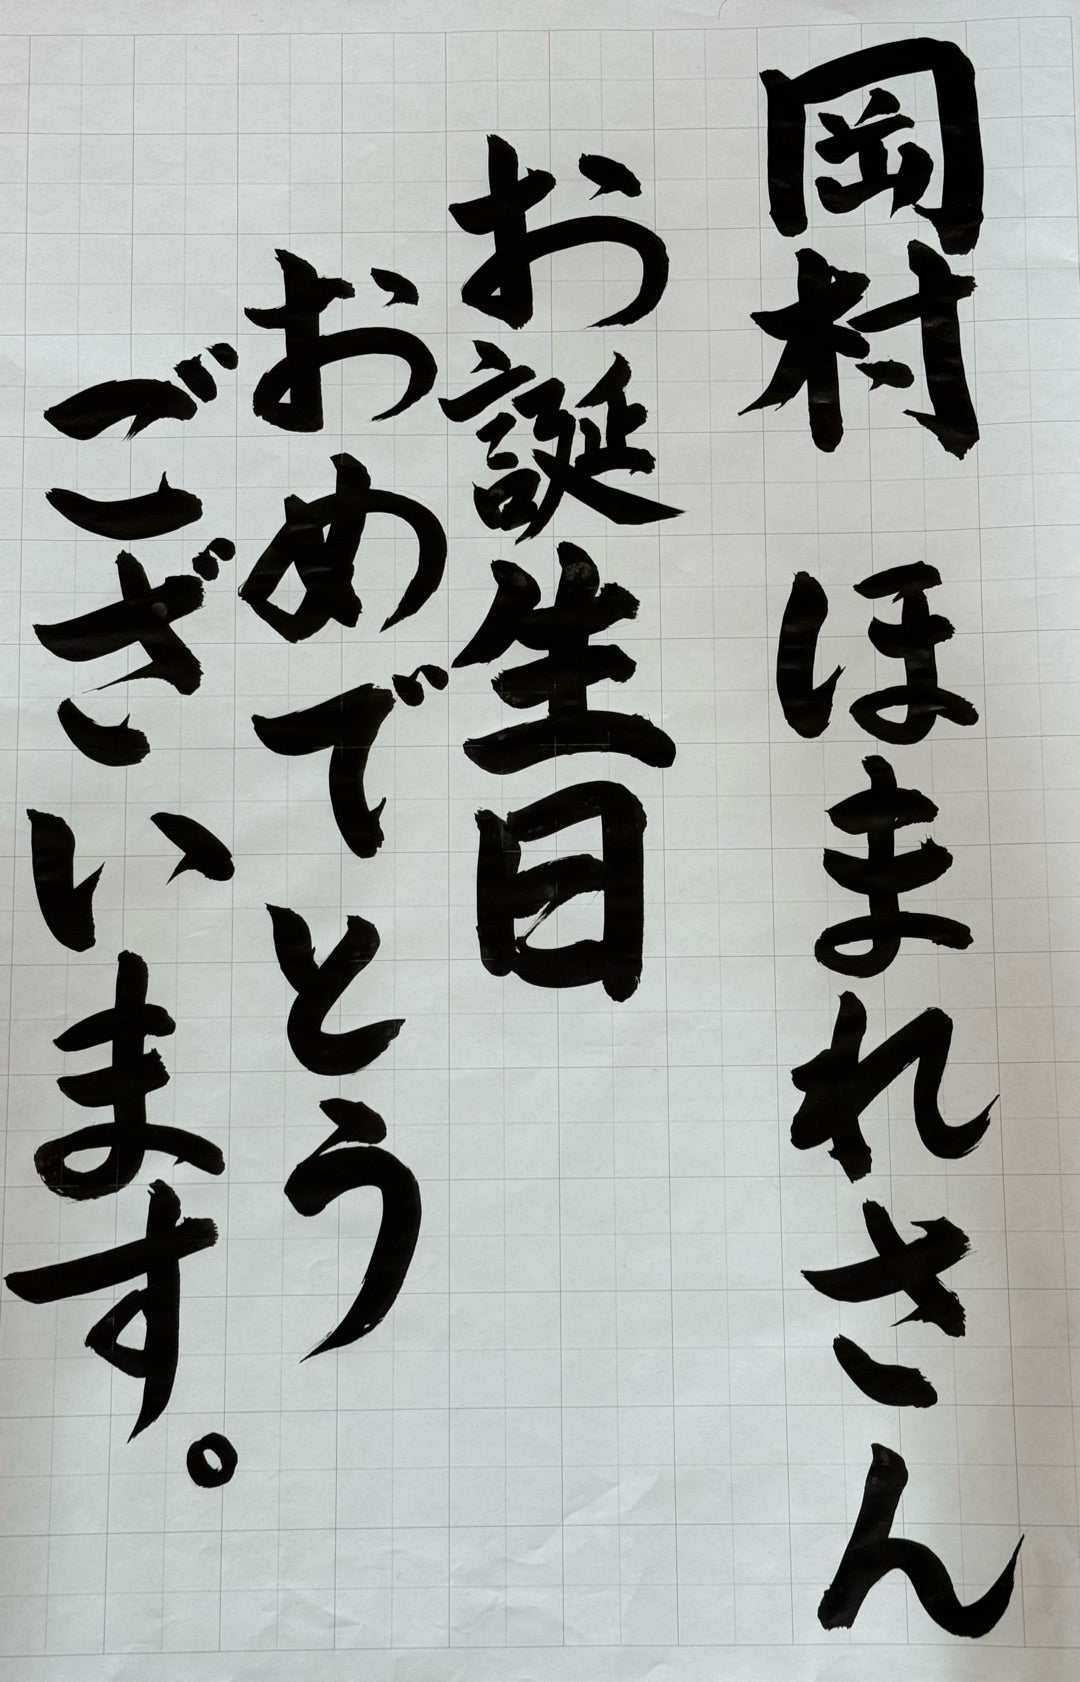 岡村 ほまれさん
お誕生日
おめでとう
ございます。